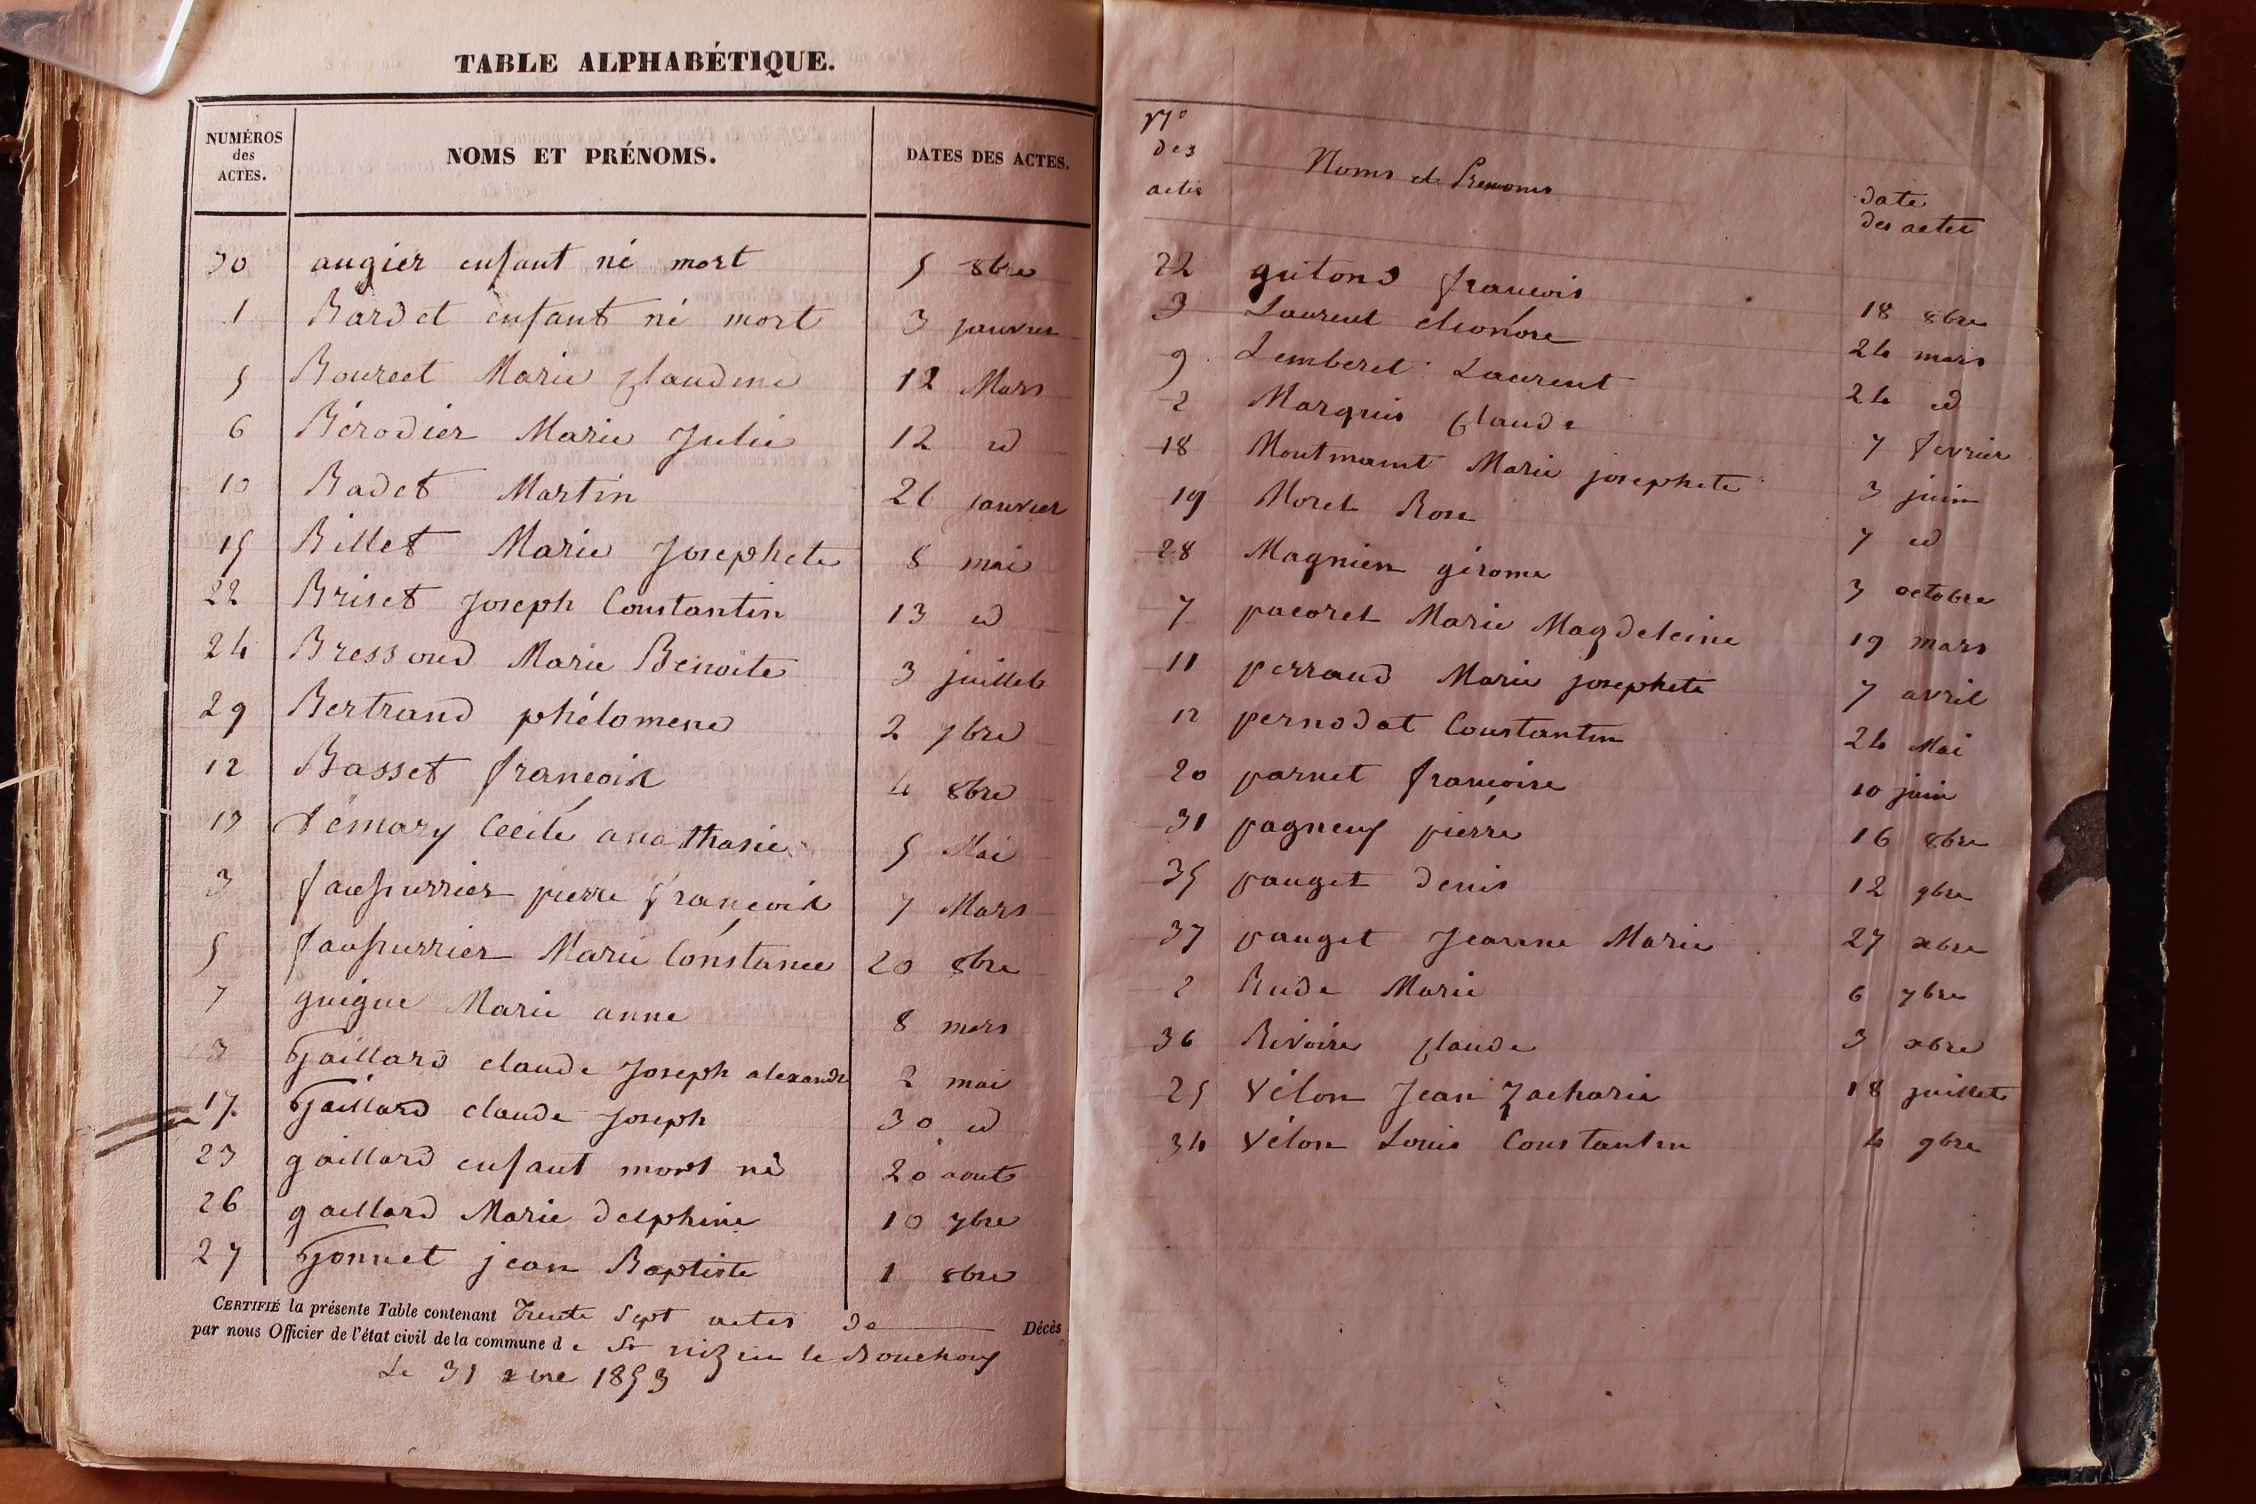 TABLE ALPHABÉTIQUE.
NUMÉROS des ACTES. NOMS ET PRÉNOMS. DATES DES ACTES.
30 augier enfant né mort 5 8bre
1 Bardet enfant né mort 3 janvier
5 Bourcet Marie Claudine 12 Mars
6 Bérodier Marie Julie 12 id
10 Badet Martin 21 janvier
15 Billet Marie Josephete 8 mai
22 Briset Joseph Constantin 13 id
24 Bressoud Marie Benoite 3 juillet
29 Bertrand phélomene 2 7bre
12 Basset francois 4 8bre
13 Démary Cecile anathasie 5 Mai
3 faussurrier pierre françois 7 Mars
5 faussurrier Marie Constance 20 8bre
7 guigue Marie anne 8 mars
13 Gaillard claude Joseph alexandre 2 mai
17 Gaillard claude Joseph 30 id
23 gaillard enfant mort né 20 aout
26 gaillard Marie delphine 10 7bre
27 Gonnet jean Baptiste 1 8bre
CERTIFIÉ la présente Table contenant Trente Sept actes de Décès
par nous Officier de l'état civil de la commune de St nizier le Bouchoux
Le 31 xbre 1853
No
des
actes
Noms et Prenoms
date
des actes
22 guitond francois 18 8bre
3 Laurent eleonore 24 mars
9 Lemberel Laurent 24 id
2 Marquis Claude 7 fevrier
18 Montmaint Marie josephete 3 juin
19 Morel Rose 7 id
28 Magnien gérome 3 octobre
7 pacoret Marie Magdeleine 19 mars
11 perraud Marie josephete 7 avril
12 pernodat Constantin 24 Mai
20 parnet francoise 10 juin
31 pagneux pierre 16 8bre
35 pauget denis 12 9bre
37 pauget Jeanne Marie 27 xbre
2 Rude Marie 6 7bre
36 Rivoire Claude 3 xbre
25 Vélon Jean Zacharie 18 juillet
34 Vélon Louis Constantin 4 9bre